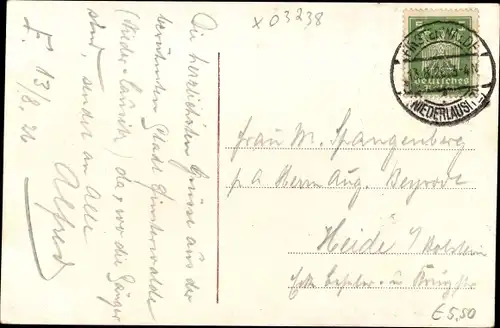 x 03238
Die herzlichsten Grüsse aus der
berühmten Stadt Finsterwalde
(Nieder-Lausitz) da, wo die Sänger
sind, sendet an Alle
Alfred
F. 13/8. 26
FINSTERWALDE
NIEDERLAUSITZ
Deutsches
Frau M. Spangenberg
p a Herrn Aug. Beyrodt
Heide i/ Holstein
Ecke u
E 5,50